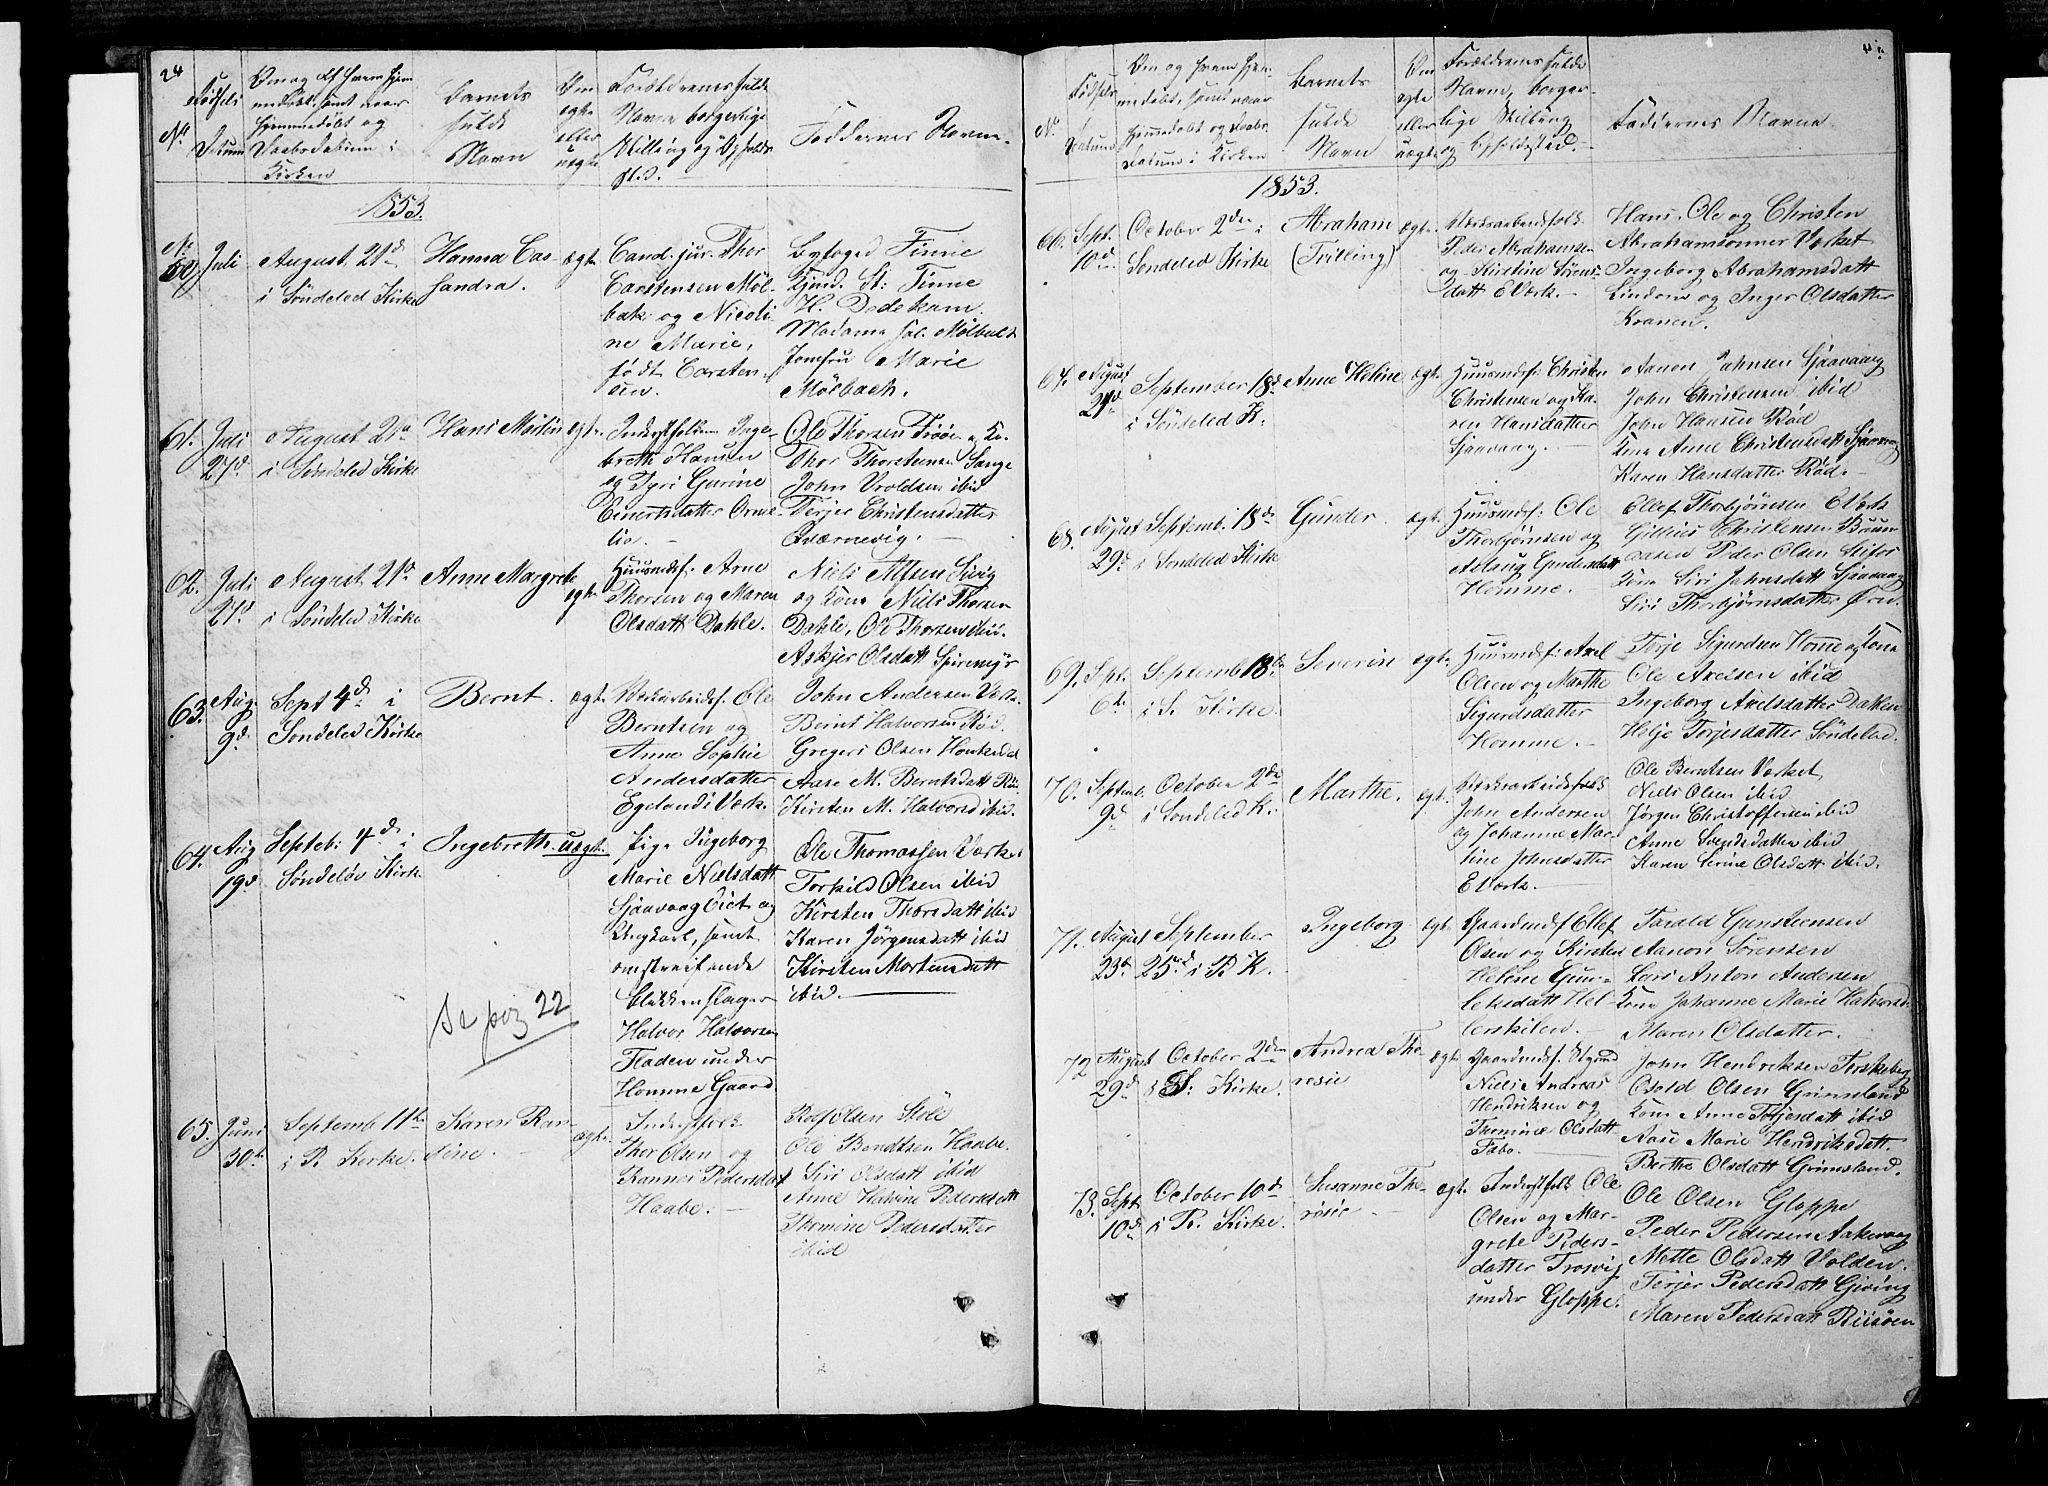 24
Fødsels
No
Datum
Om og af hvem hjem-
medøbt, samt naar
hjemmedøbt og
Daabsdatum i
Kirken
Barnets
fulde
Navn
Om
egte
eller
uegte
Forældrenes fulde
Navn borgerlige
Stilling og Opholds
sted.
Faddernes Navne.
1853.
No
60
Juli
August 21d
i Søndeled Kirke
Hanna Cas-
sandra.
ægte
Cand. jur. Thor
Carstensen Møl-
bak og Nicoli-
ne Marie,
født Carsten-
sen.
Byfoged Finne
St. Finne
H. Dedekam.
Madame
Jomfru Marie
Mølbach.
61.
Juli
27d.
August 21d
i Søndeled Kirke
Hans Martin
ægte
Inderstfolk Inge-
breth Hansen
og Tyri Gurine
Einertsdatter Orme-
lia.
Ole Thorsen
Thor Thorstensen Sange
John Vroldsen ibid
Terjer Christensdatter
Qværnevig.
62.
Juli
21d
August 21d
i Søndeled Kirke
Anne Margrete
egte
Huusmdsf. Arne
Thorsen og Maren
Olsdatt Dahle.
Niels Alfsen Sivig
og Kone Niels Thorsen
Dahle, Ole Thorsen ibid.
Askjer Olsdatt Spiremyr
63.
Aug.
9d.
Sept 4d i
Søndeled Kirke
Bernt.
ægte
Værksarbeidsf. Ole
Berntsen og
Anne Sophie
Andersdatter
Egelands Værk.
John Andersen Værk.
Bernt Halvorsen Rød.
Gregers Olsen
Aase M. Berntsdatt Rød
Kirsten M. Halvorsd ibid.
64.
Aug
19d
Septeb: 4d i
Søndeløv Kirke
Ingebreth
uægte.
Pige Ingeborg
Marie Nielsdatt
Sjaavaag Eiet og
Ungkarl, samt
omstreifende
blikkenslager
Halvor Halvorsen
Fladen under
Homme Gaard
Ole Thomassen Værket
Torkild Olsen ibid
Kirsten Thorsdatt ibid
Karen Jørgensdatt ibid
Kirsten Mortensdatt
ibid.
Se pag 22
65.
Juni
30te
Septemb 11te
i R. Kirke.
Karen Ran-
dine.
ægte
Inderstfolk
Thor Olsen og
Rannei Pedersdatt
Haabe.
Rolf Olsen Støle
Ole Bendtsen Haabe.
Siri Olsdatt ibid
Anne Halvine Pedersdatt
Thomine Pedersdatter
ibid
No.
Fødsels
Datum
Om og hvem hjem-
medøbt, samt naar
hjemedøbt og Daabs-
datum i Kirken
Barnets
fulde
Navn
Om
ægte
eller
uægte
Forældrenes fulde
Navn, borger-
lige Stilling
og Opholdssted.
Faddernes Navne
1853.
66.
Sept.
10de
October 2den i
Søndeled Kirke
Abraham
(Trilling)
ægte.
Værksarbeidsfolk
Peder Abrahamsen
og Kirstine Sørens-
datt EVærk.
Hans, Ole og Christen
Abrahamsønner Værket
Ingeborg Abrahamsdatt
Lindom og Inger Olsdatter
Kranen.
67.
August
21d.
September 18d
i Søndeled K.
Anne Heline
ægte.
Huusmdsf. Christen
Christensen og Ka-
ren Hansdatter
Sjaavaag.
Aanon Johnsen Sjaavaag
John Christensen ibid
John Hansen Rød
Kone Anne Christensdatt Sjaavaag
Karen Hansdatter Rød.
68.
August
29d.
Septemb. 18de
i Søndeled Kirke
Gunder.
ægte.
Huusmdsf. Ole
Thorbjørnsen og
Aslaug Gundersdatt
Homme.
Ellef Thorbjørnsen EVærk
Gillius Christensen Bruun-
aasen Peder Olsen Seifor
Kone Siri Johnsdatt Sjaavaag
Siri Thorbjørnsdatter Ørn.
69.
Sept.
6te
Septemb 18de
i S. Kirke.
Severin
ægte
Huusmdsf. Axel
Olsen og Marthe
Sigurdsdatter
Homme.
Terje Sigurdsen Home og Kone
Ole Axelsen ibid
Ingeborg Axelsdatter Dakken
Helje Torjesdatter Søndeled.
70.
Septemb.
9d.
October 2de
i Søndeled K:
Marthe.
ægte.
Værksarbeidsfolk
John Andersen
og Johanne Mar-
tine Johnsdatter
EVærk.
Ole Berntsen Værket
Niels Olsen ibid
Jørgen Christoffersen ibid
Anne Svendsdatter ibid
Karen Serine Olsdatt ibid.
71.
August
23d
September
25de i R K.
Ingeborg
ægte.
Gaardmdsf Ellef
Olsen og Kirsten
Helene Gun-
leksdatt Hel-
lerskilen.
Tarald Gunsteensen
Aanon Sørensen
Lars Anton Andersen
Kone Johanne Marie Halvorsd
Maren Olsdatter.
72
August
29d.
October 2den
i S. Kirke.
Andrea The-
resie
ægte
Gaardmdsf. Sigurd
Niels Andreas
Hendriksen og
Thomine Olsdatt
Febo.
John Hendriksen Torskeberg
Osold Olsen Grimsland
Kone Anne Torjesdatt ibid
Aase Marie Hendriksdatt.
Berthe Olsdatt Grimsland.
73.
Sept
10d.
October 10d
i R. Kirke.
Susanne The-
resie.
ægte.
Inderstfolk Ole
Olsen og Mar-
grete Peders-
datter Trosvig
under Gloppe.
Ole Olsen Gloppe
Peder Pedersen Aakervaag
Mette Olsdatt Volden.
Terjer Pedersdatt Gjeving
Maren Pedersdatt Riisøen